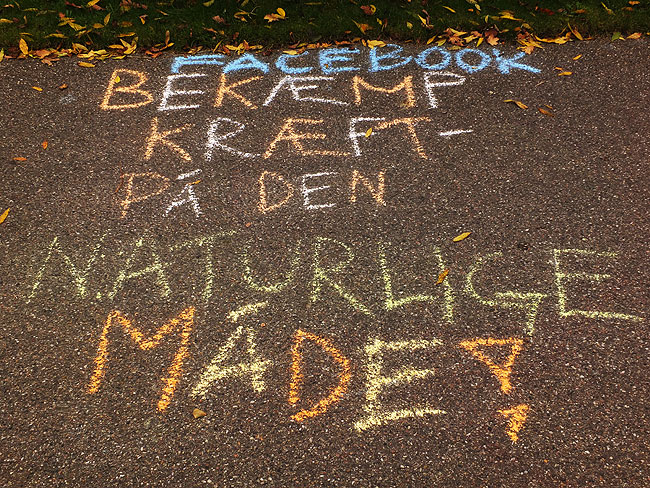 FACEBOOK
BEKÆMP
KRÆFT-
PÅ DEN
NATURLIGE
MÅDE!